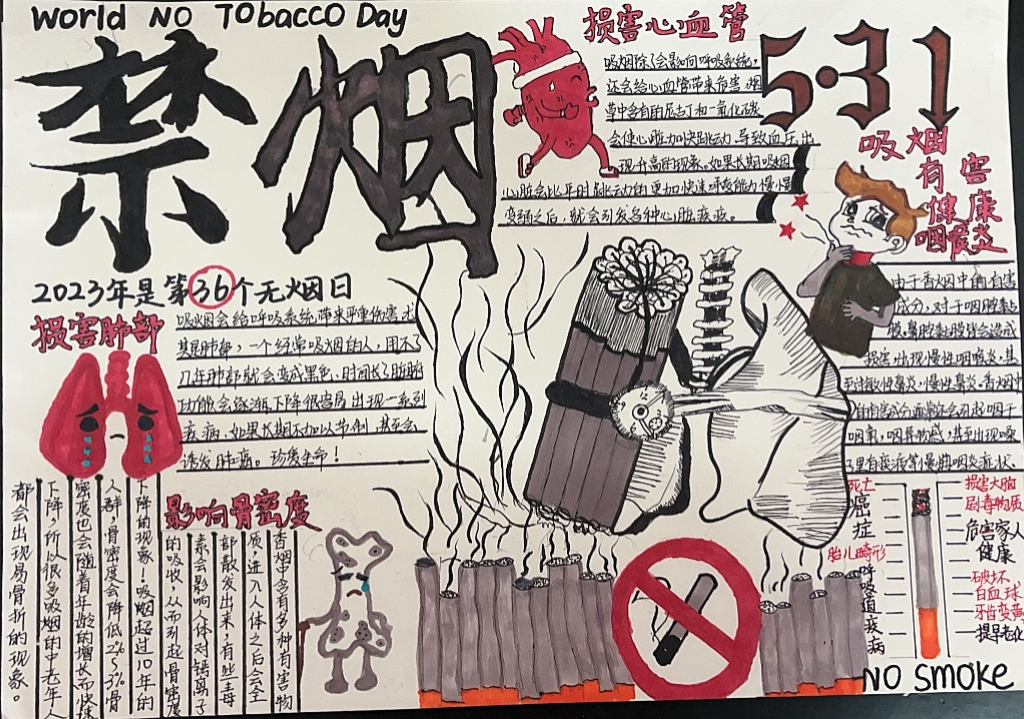 World NO TObacco Day
禁烟
5·31
损害心血管
吸烟除了会影响呼吸系统,
还会给心血管带来危害,烟
草中含有的尼古丁和一氧化碳
会使心脏加快跳动,导致血压出
现升高的现象。如果长期吸烟
心脏会比平时跳动的更加快速,承受能力慢慢
变弱之后,就会引发多种心脏疾病。
吸烟
有害
健康
咽喉炎
由于香烟中的有害
成分,对于咽腔黏
膜,鼻腔黏膜
损害出现慢性咽喉炎,
过敏性鼻炎,慢性鼻炎,香烟中
有害成分
咽氧,咽异物感,甚至出现
慢性咽炎症状
2023年是第36个无烟日
损害肺部
吸烟会给呼吸系统带来严重伤害,尤
其是肺部,一个经常吸烟的人,用不了
几年肺部就会变成黑色,时间长了肺脏
功能会逐渐下降很容易出现一系列
疾病,如果长期不加以节制,甚至会
诱发肺癌。珍爱生命!
影响骨密度
香烟中含有多种有害物
质,进入人体之后会全
部散发出来,有些毒
素会影响人体对钙离子
的吸收,从而引起骨密度
下降的现象!吸烟超过10年的
人群,骨密度会降低2%~3%骨
密度也会随着年龄的增长而快速
下降,所以很多吸烟的中老年人
都会出现易骨折的现象。
死亡
癌症
胎儿畸形
呼吸道疾病
损害大脑
剧毒物质
危害家人
健康
破坏
白血球
牙齿变黄
提早老化
NO SMOKE